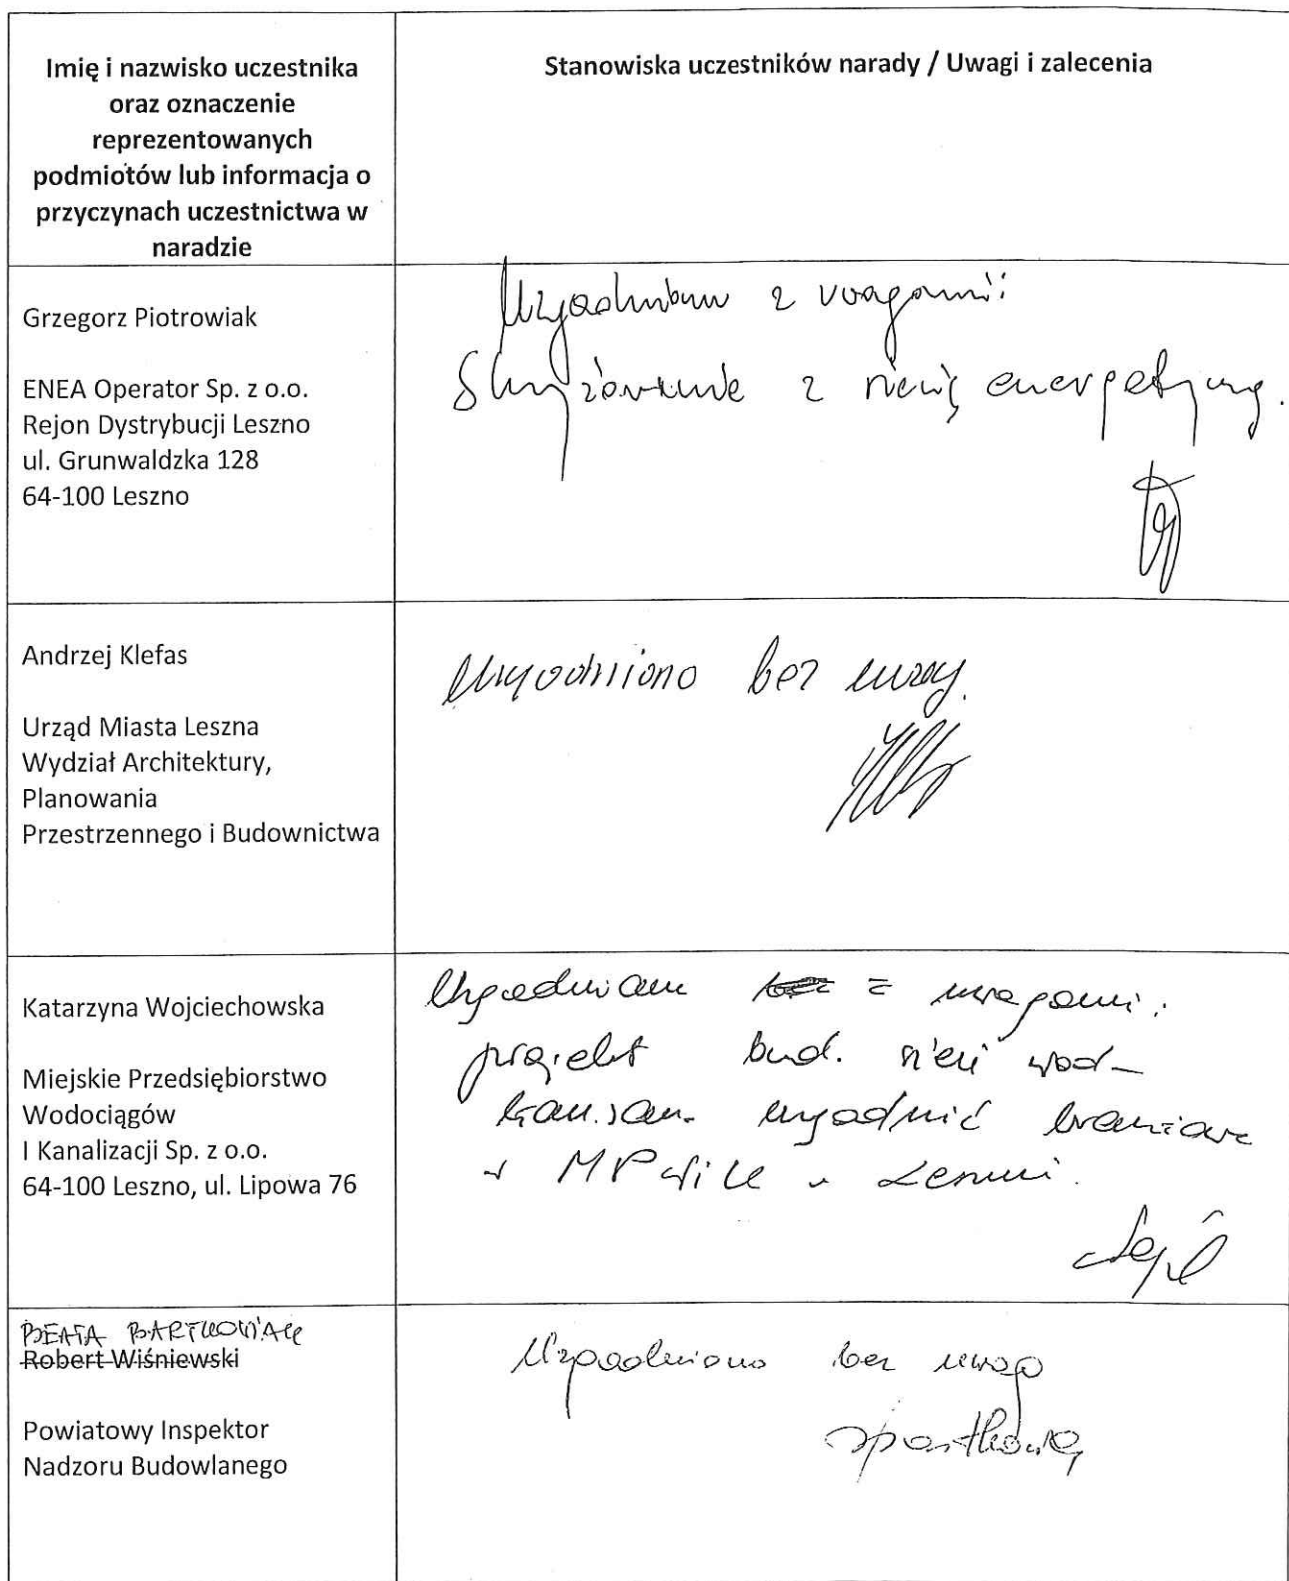 Imię i nazwisko uczestnika
oraz oznaczenie
reprezentowanych
podmiotów lub informacja o
przyczynach uczestnictwa w
naradzie
Stanowiska uczestników narady / Uwagi i zalecenia
Grzegorz Piotrowiak
ENEA Operator Sp. z o.o.
Rejon Dystrybucji Leszno
ul. Grunwaldzka 128
64-100 Leszno
Uzgodniono z uwagami:
Skrzyżowanie z siecią energetyczną.
Andrzej Klefas
Urząd Miasta Leszna
Wydział Architektury,
Planowania
Przestrzennego i Budownictwa
Uzgodniono bez uwag.
Katarzyna Wojciechowska
Miejskie Przedsiębiorstwo
Wodociągów
I Kanalizacji Sp. z o.o.
64-100 Leszno, ul. Lipowa 76
Uzgadniam bez z uwagami:
projekt bud. sieci wod-
kan.san. uzgodnić branżowo
w MPWiK w Lesznie.
BEATA BARTKOWIAK
Robert Wiśniewski
Powiatowy Inspektor
Nadzoru Budowlanego
Uzgodniono bez uwag